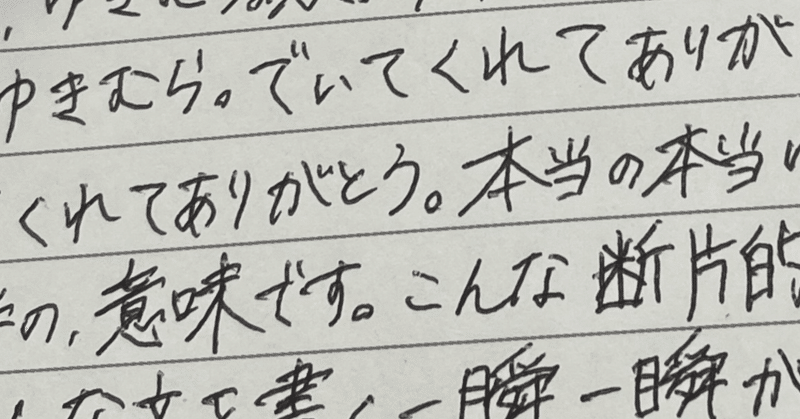 ゆきむら。でいてくれてありが
くれてありがとう。本当の本当
の、意味です。こんな断片的
な文を書く一瞬一瞬が